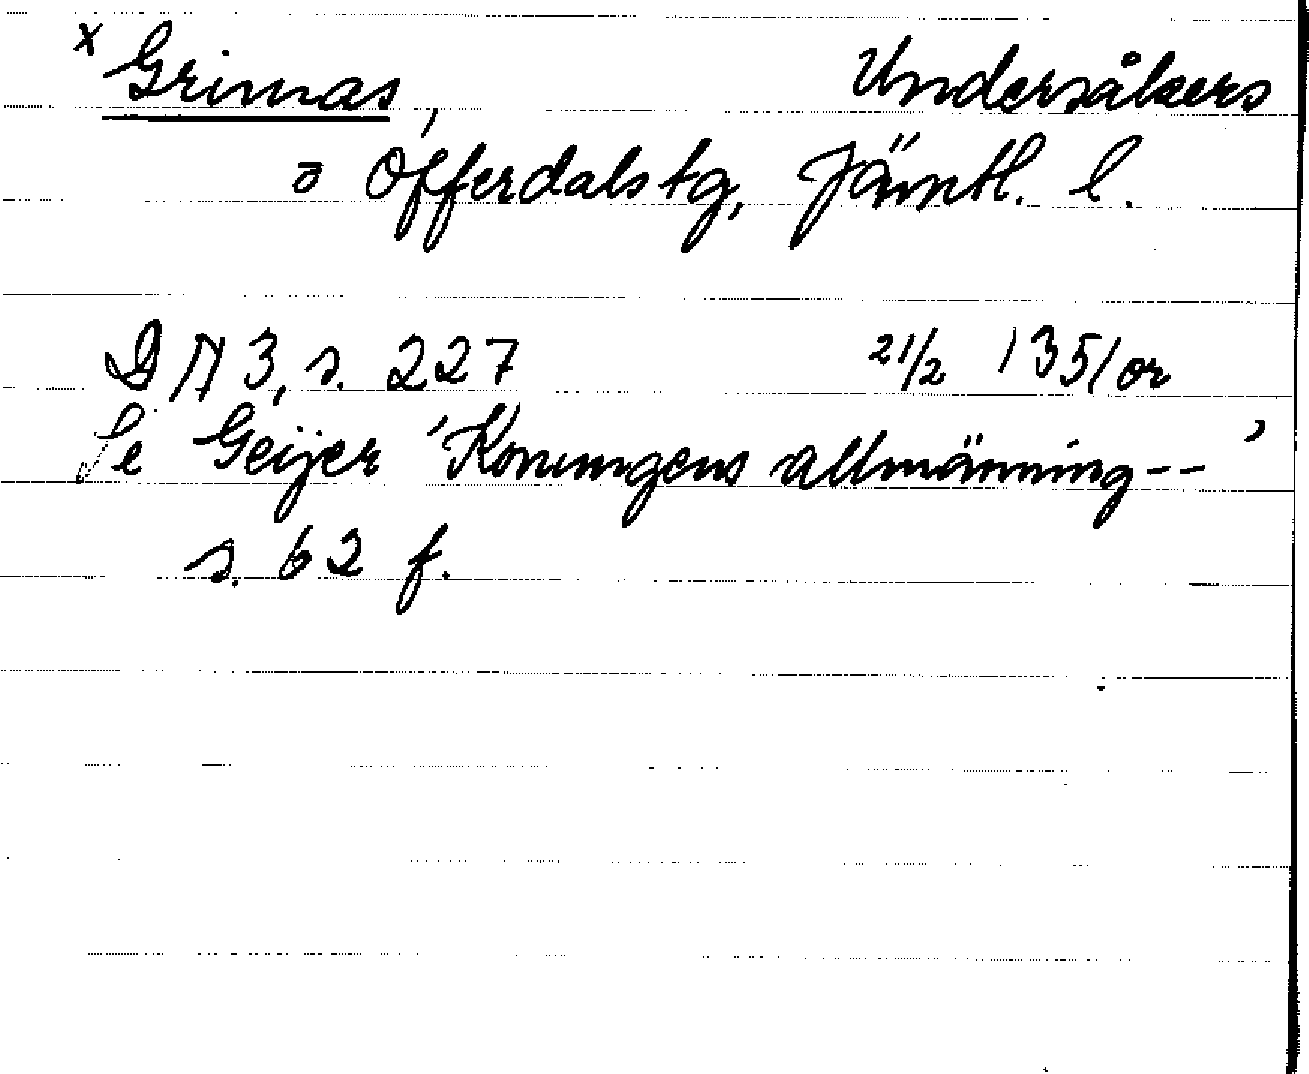 x Grimas, Undersåkers
o Offerdals tg, Jämtl. l.
DN 3, s. 227 21/2 1351 or
Se Geijer 'Konungens allmänning--'
s. 62 f.